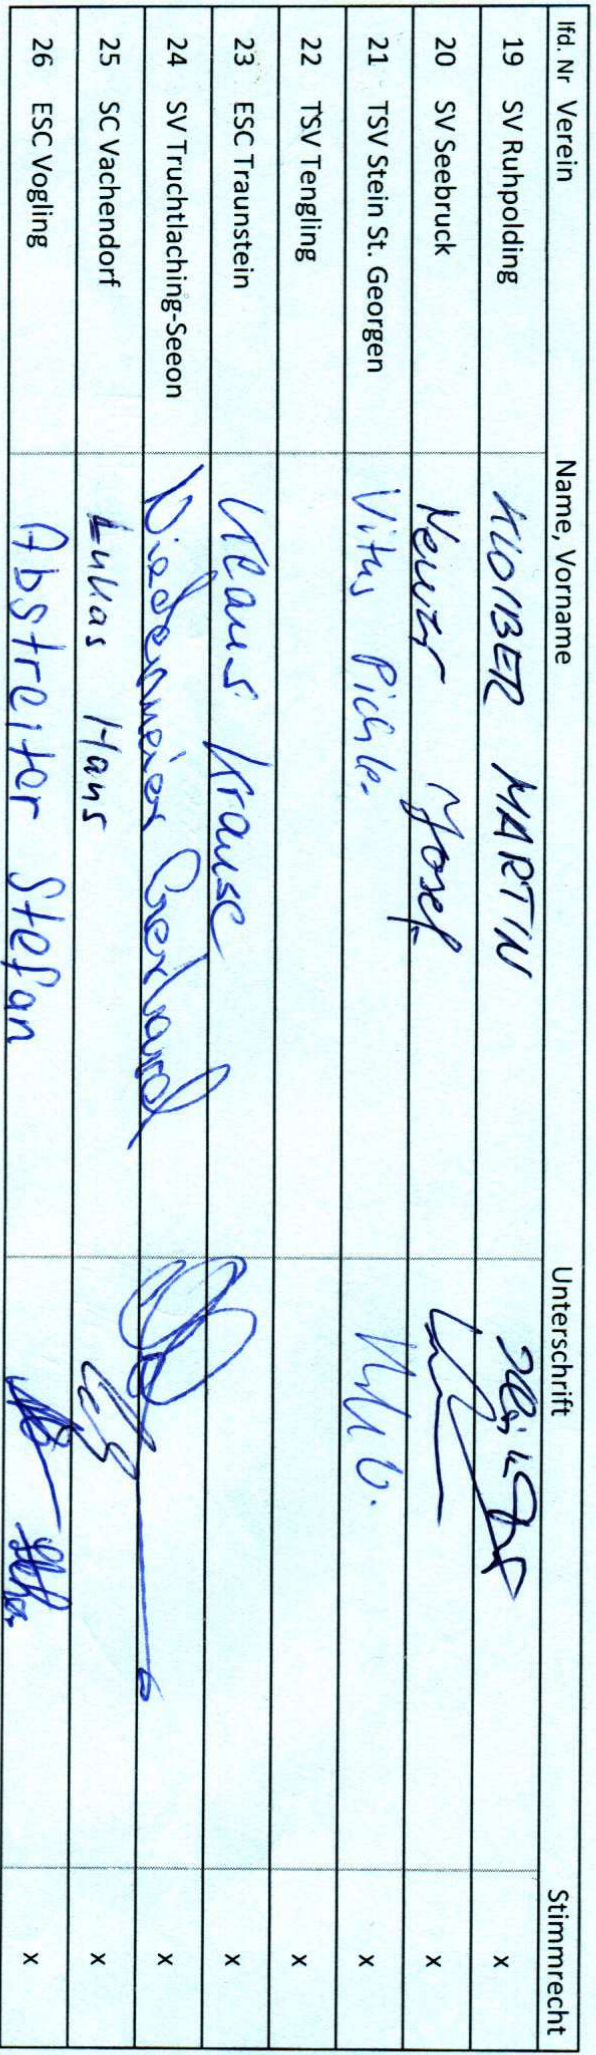 lfd. Nr Verein Name, Vorname Unterschrift Stimmrecht
19 SV Ruhpolding KLOIBER MARTIN x
20 SV Seebruck Josef x
21 TSV Stein St. Georgen Vitus Pichle. x
22 TSV Tengling x
23 ESC Traunstein Klaus Krause x
24 SV Truchtlaching-Seeon Niedermeier Gerhard x
25 SC Vachendorf Lukas Hans x
26 ESC Vogling Abstreiter Stefan x